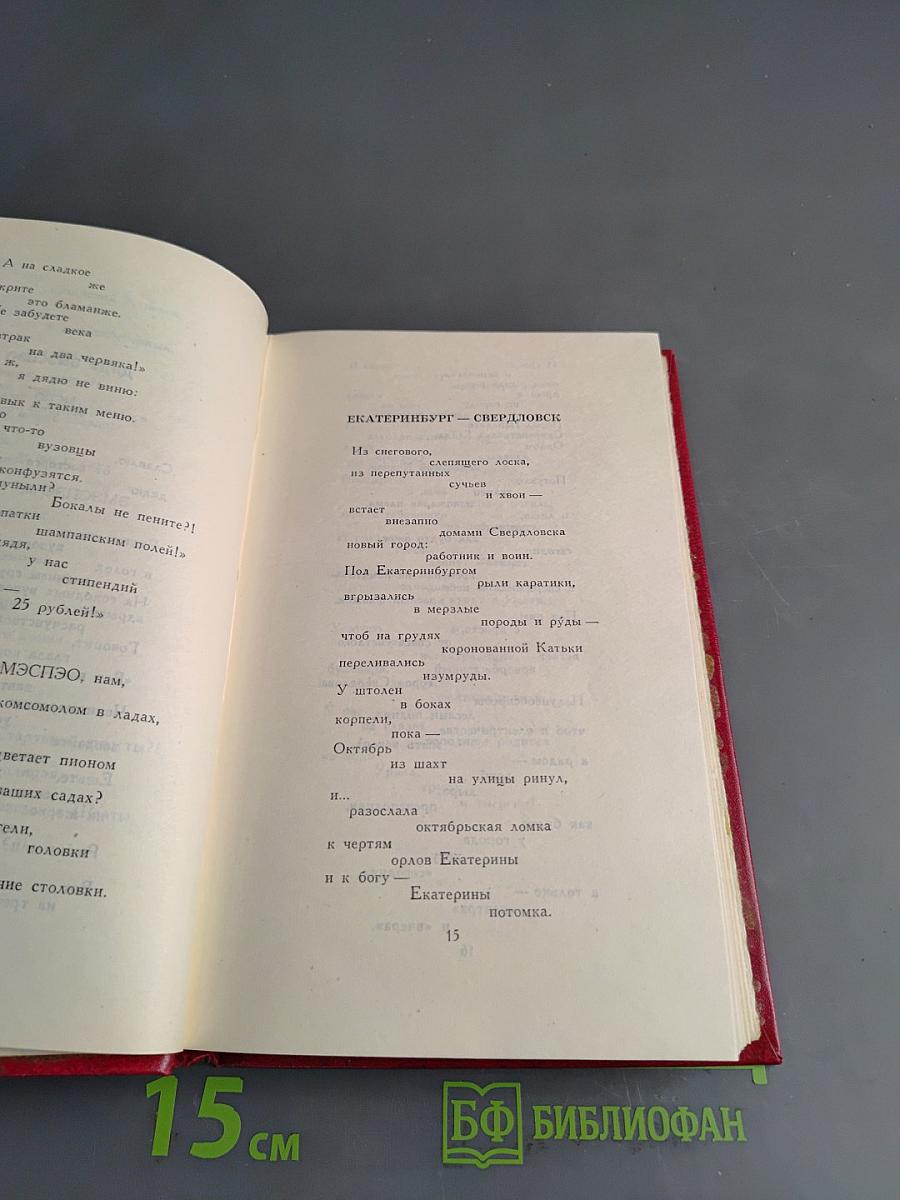 А на сладкое
же
это бламанже.
забудете
века
на два червяка!»
ж,
я дядю не виню:
к таким меню.
что-то
вузовцы
конфузятся.
Бокалы не пените?!
шампанским полей!»
у нас
стипендий
—
25 рублей!»
МЭСПЭО, нам,
комсомолом в ладах,
пионом
садах?
головки
столовки.
ЕКАТЕРИНБУРГ — СВЕРДЛОВСК
Из снегового,
слепящего лоска,
из перепутанных
сучьев
и хвои —
встает
внезапно
домами Свердловска
новый город:
работник и воин.
Под Екатеринбургом
рыли каратики,
вгрызались
в мерзлые
породы и ру́ды —
чтоб на грудях
коронованной Катьки
переливались
изумруды.
У штолен
в боках
корпели,
пока —
Октябрь
из шахт
на улицы ринул,
и...
разослала
октябрьская ломка
к чертям
орлов Екатерины
и к богу —
Екатерины
потомка.
15
15 СМ
БФ БИБЛИОФАН